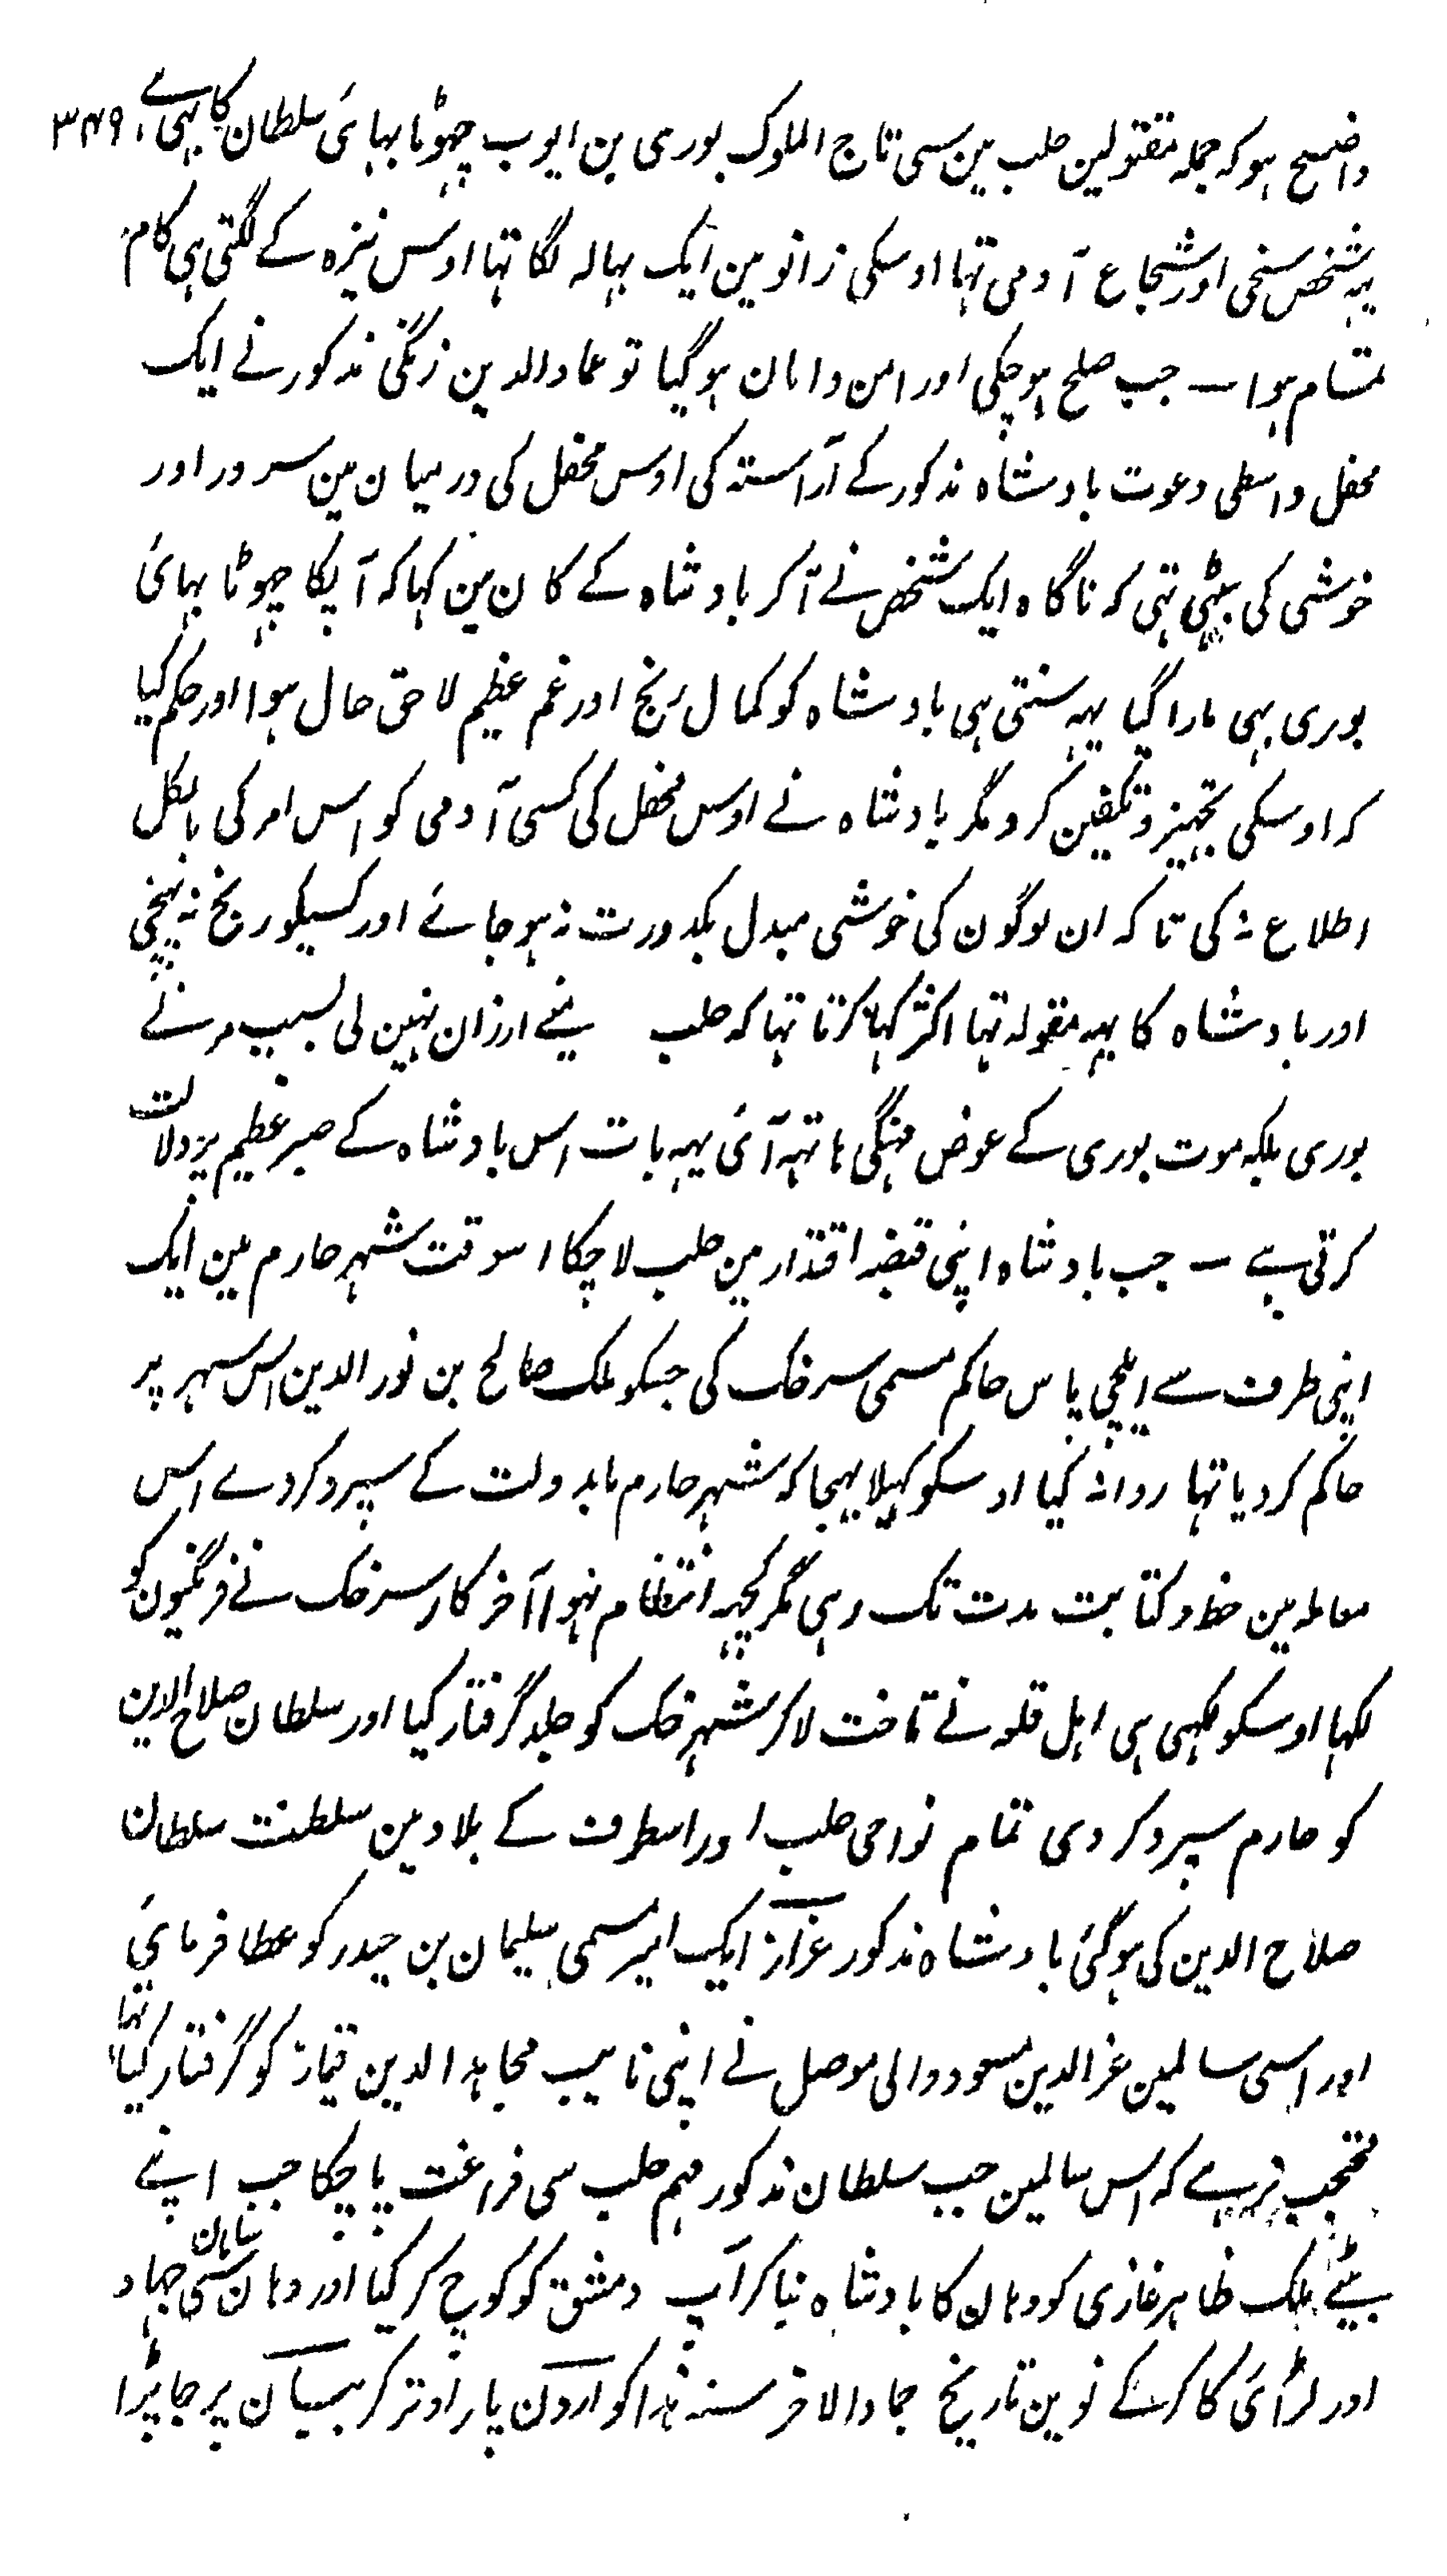 واضح ہو کہ جملہ مقتولین حلب مین سی تاج الملوک بوری بن ایوب چہوٹا بہائی سلطان کا بہی ہے ۳۴۹
یہہ شخص سخی اور شجاع آدمی تہا اوسکی زانو مین ایک بہالہ لگا تہا اوس نیزہ کے لگتی ہی کام
تمام ہوا — جب صلح ہو چکی اور امن و امان ہو گیا تو عماد الدین زنگی مذکور نے ایک
محفل واسطی دعوت بادشاہ مذکور کے آراستہ کی اوس محفل کی درمیان مین سرور اور
خوشی کی بیٹہی تہی کہ ناگاہ ایک شخص نے آکر بادشاہ کے کان مین کہا کہ آپکا چہوٹا بہائی
بوری بہی مارا گیا یہہ سنتی ہی بادشاہ کو کمال رنج اور غم عظیم لاحق حال ہوا اور حکم کیا
کہ اوسکی تجہیز و تکفین کرو مگر بادشاہ نے اوس محفل کی کسی آدمی کو اس امر کی بالکل
اطلاع نہ کی تاکہ ان لوگون کی خوشی مبدل بکدورت نہ ہو جائے اور کسیکو رنج نہ پہنچی
اور بادشاہ کا یہہ مقولہ تہا اکثر کہا کرتا تہا کہ حلب مینے ارزان نہین لی بسبب مرنے
بوری بلکہ موت بوری کے عوض مہنگی ہاتہہ آئی یہہ بات اس بادشاہ کے صبر عظیم پر دلالت
کرتی ہے — جب بادشاہ اپنی قبضہ اقتدار مین حلب لا چکا اسوقت شہر حارم مین ایک
اپنی طرف سے ایلچی پاس حاکم مسمی سرخک کی جسکو ملک صالح بن نور الدین اس سہر پر
حاکم کر دیا تہا روانہ کیا اوسکو کہلا بہیجا کہ شہر حارم مابدولت کے سپرد کر دے اس
معاملہ مین خط و کتابت مدت تک رہی مگر کچہہ انتظام نہوا آخر کار سرخک نے فرنگیون کو
لکہا اوسکو لکہی ہی اہل قلعہ نے تاخت لا کر شہر خک کو جلد گرفتار کیا اور سلطان صلاح الدین
کو حارم سپرد کر دی تمام نواحی حلب اور اسطرف کے بلاد مین سلطنت سلطان
صلاح الدین کی ہو گئی بادشاہ مذکور عزاز ایک امیر مسمی سلیمان بن حیدر کو عطا فرمائی
اور اسی سالمین عز الدین مسعود والی موصل نے اپنی نایب مجاہد الدین قیماز کو گرفتار کیا تہا
کہ اس سالمین جب سلطان مذکور مہم حلب سی فراغت پا چکا جب اپنے
بیٹے ملک ظاہر غازی کو وہان کا بادشاہ بنا کر آپ دمشق کو کوچ کر گیا اور وہان سی سامان جہاد
اور لڑائی کا کر کے نوین تاریخ جماد الاخر سنہ ہذا کو اردن پار اوتر کر بیسان پر جا پڑا